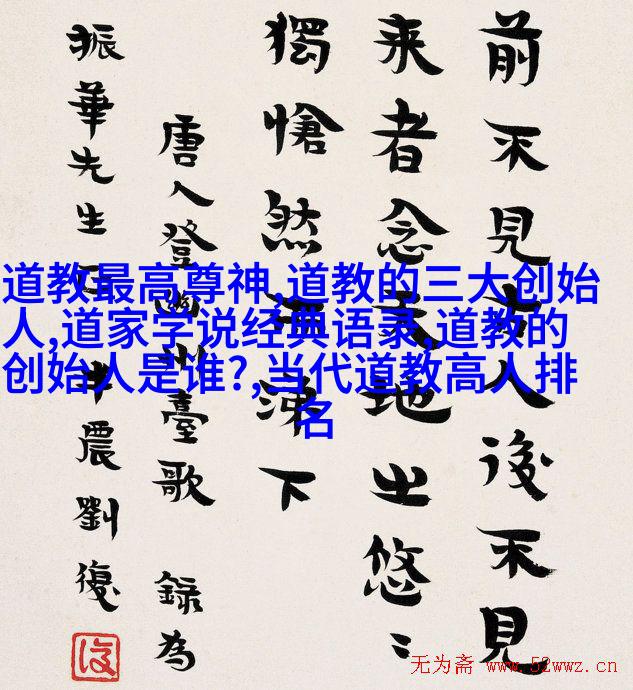 前不見古人後不見
来者念天地之悠〻
獨愴然涕下
唐人登幽州臺歌 錄為
振華先生正 半農劉復
道教最高尊神,道教的三大创始
人,道家学说经典语录,道教的
创始人是谁?,当代道教高人排
名
无为斋 www.52wwz.cn